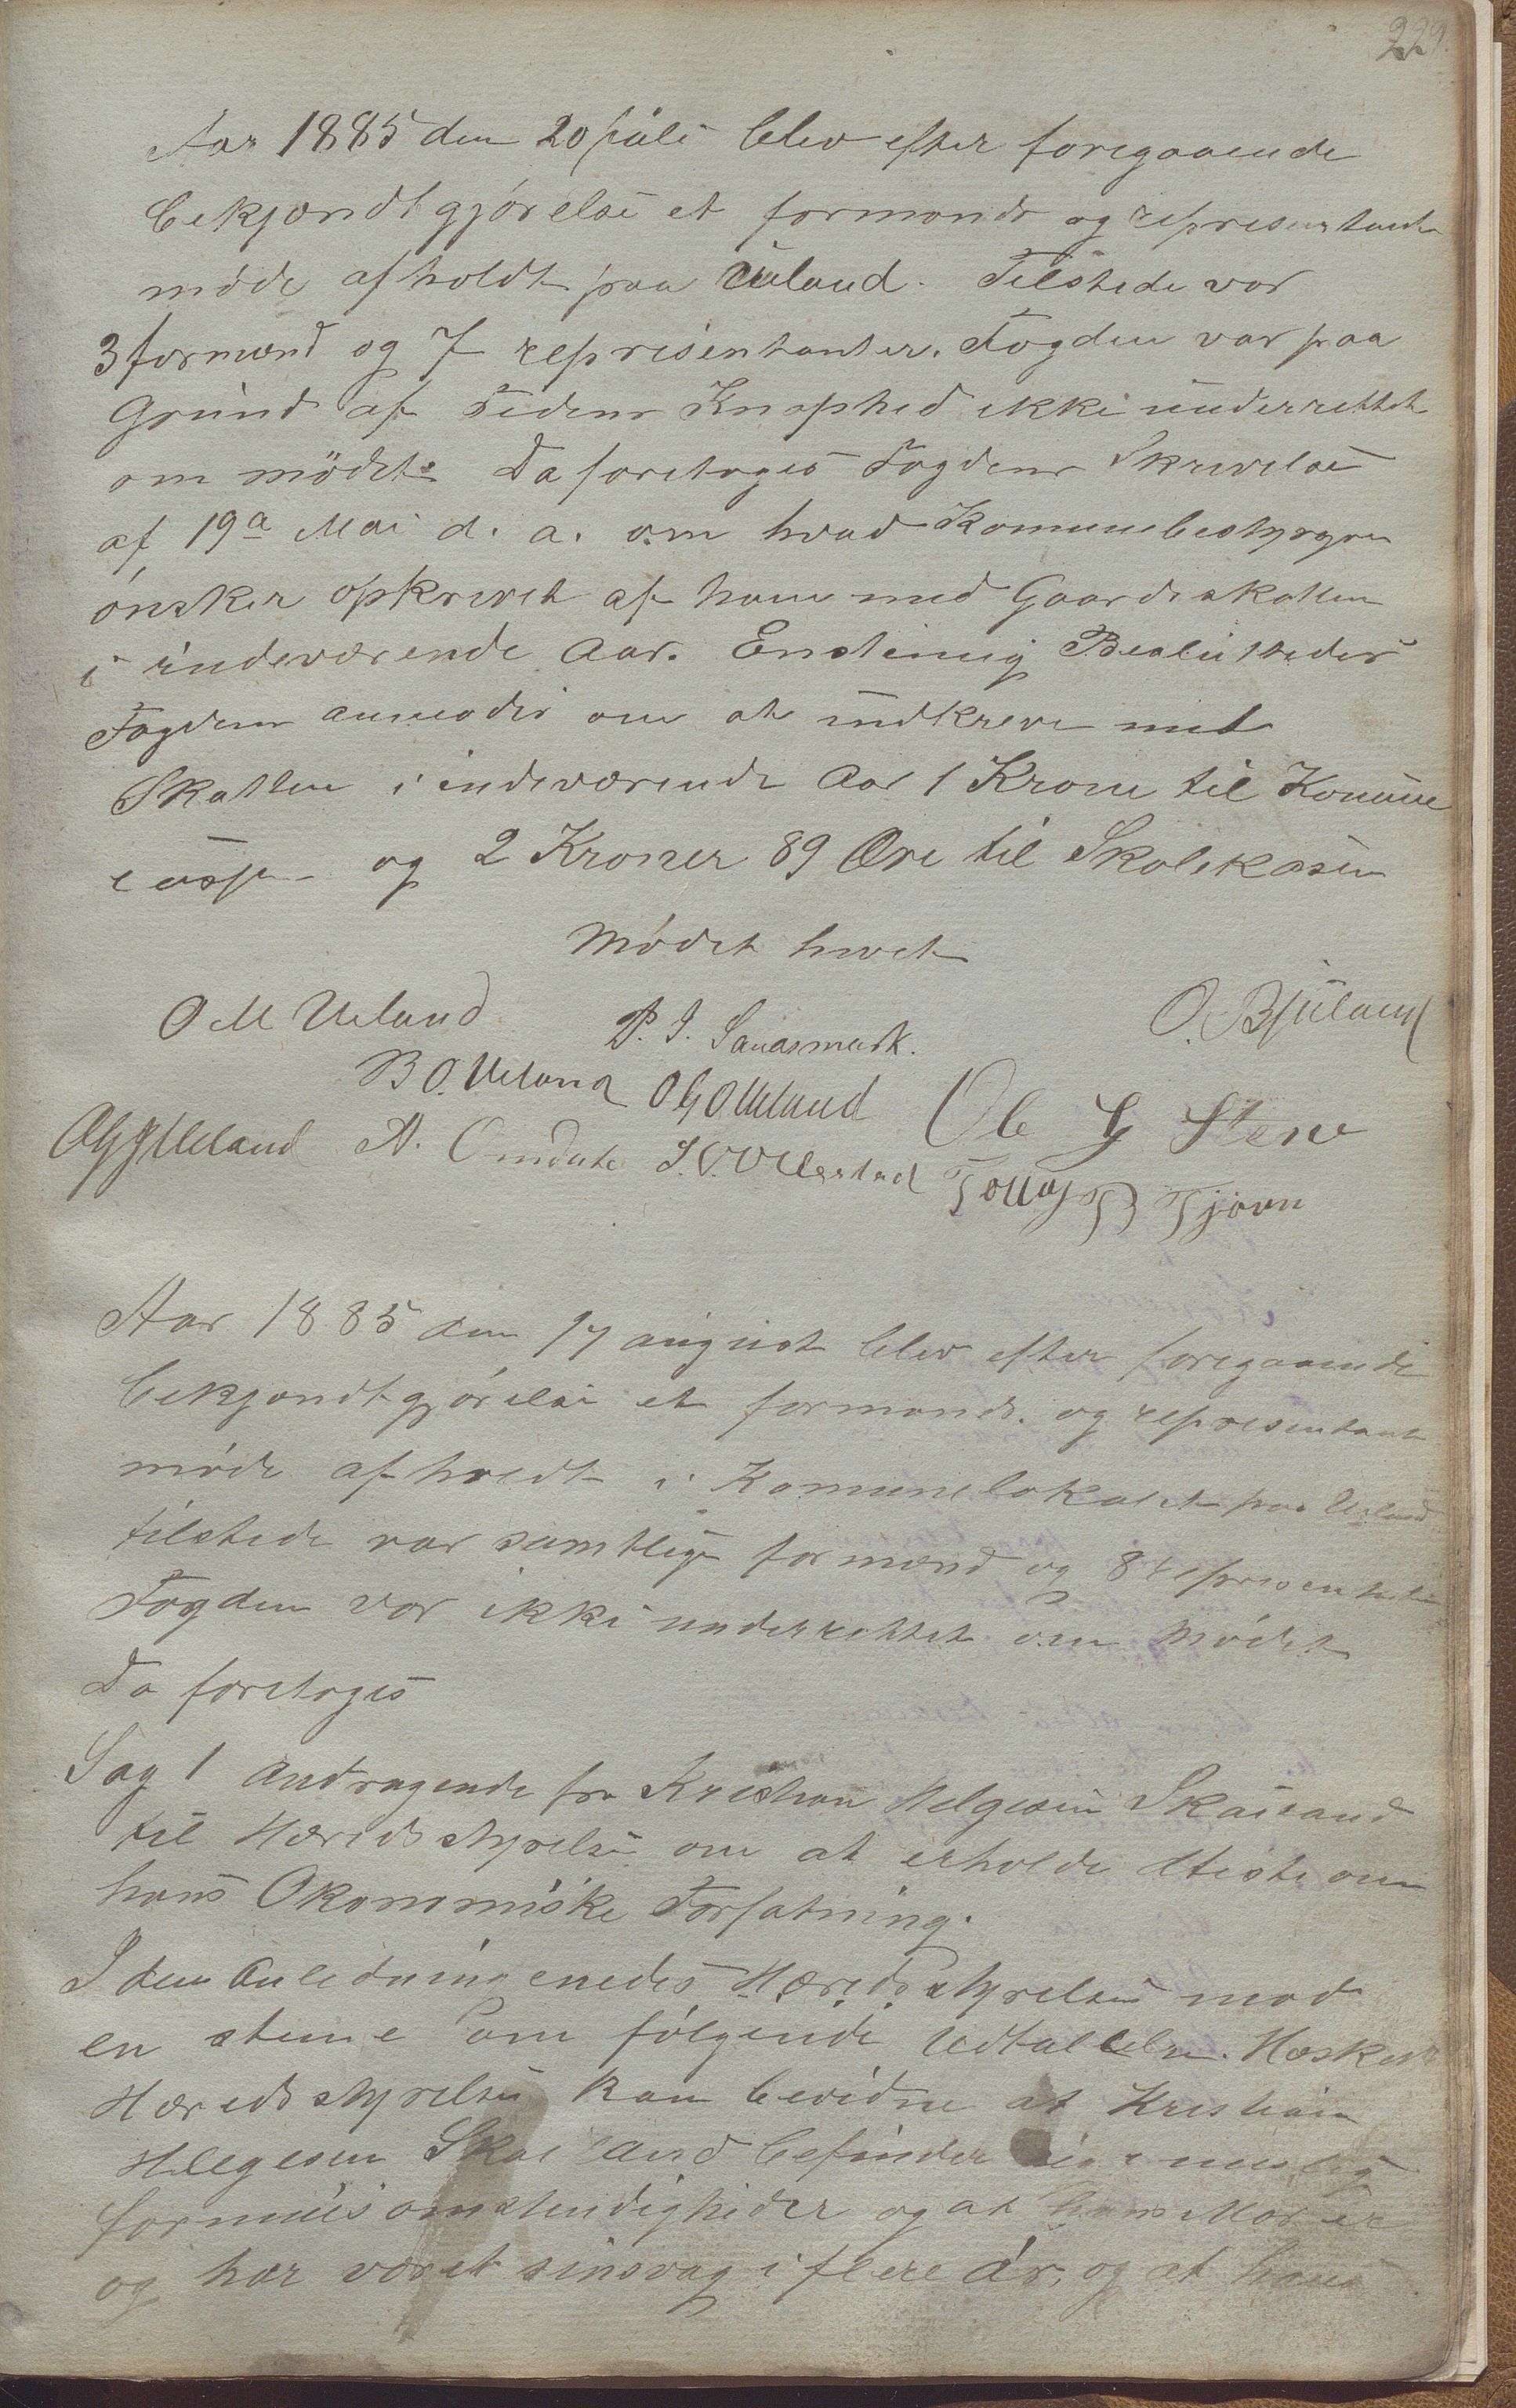 229.
Aar 1885 den 20 juli blev efter foregaaende
bekjendtgjörelse et formands og representant
möde afholdt paa Ueland. Tilstede var
3 formænd og 7 representanter. Fogden var paa
Grund af Tidens Knaphed ikke underrettet
om mödet. Da foretoges Fogdens Skrivelse
af 19a Mai d. a. om hvad Komunebestyren
önsker opkrevet af ham med Gaardsskatten
i indeværende Aar. Enstemig Besluttedes
Fogden anmodes om at indkreve med
Skatten i indeværende Aar 1 Krone til Komune
og 2 Kroner 89 Öre til Skolekasen
Mödet hevet
O M Ueland P. I. Saurdsmark. O. Bjuland
B O. Ueland O G O Ueland Ole G Stene
O G J Ueland A. Omdale S. O. Ollestad Tollag B Tjörn
Aar 1885 den 17 august blev efter foregaaende
bekjendtgjörelse et formands. og representant
möde afholdt i Komunelokalet paa Ueland
tilstede var samtlige formænd og 8 representanter
Fogden var ikke underrettet om Mödet
Da foretoges
Sag 1 Andragende fra Kristian Helgesen Skaaland
til Herredsstyrelse om at erholde Atest om
hans Okonomiske Forfatning.
I den Anledning enedes Herredsstyrelsen med
en steme om fölgende Udtallelse. Heskest
Herredsstyrelse kan bevidne at Kristian
Helgesen Skaaland befinder sig i
formuesomstendigheder og at hans Mor er
og har været sinsvag i flere år, og at hans